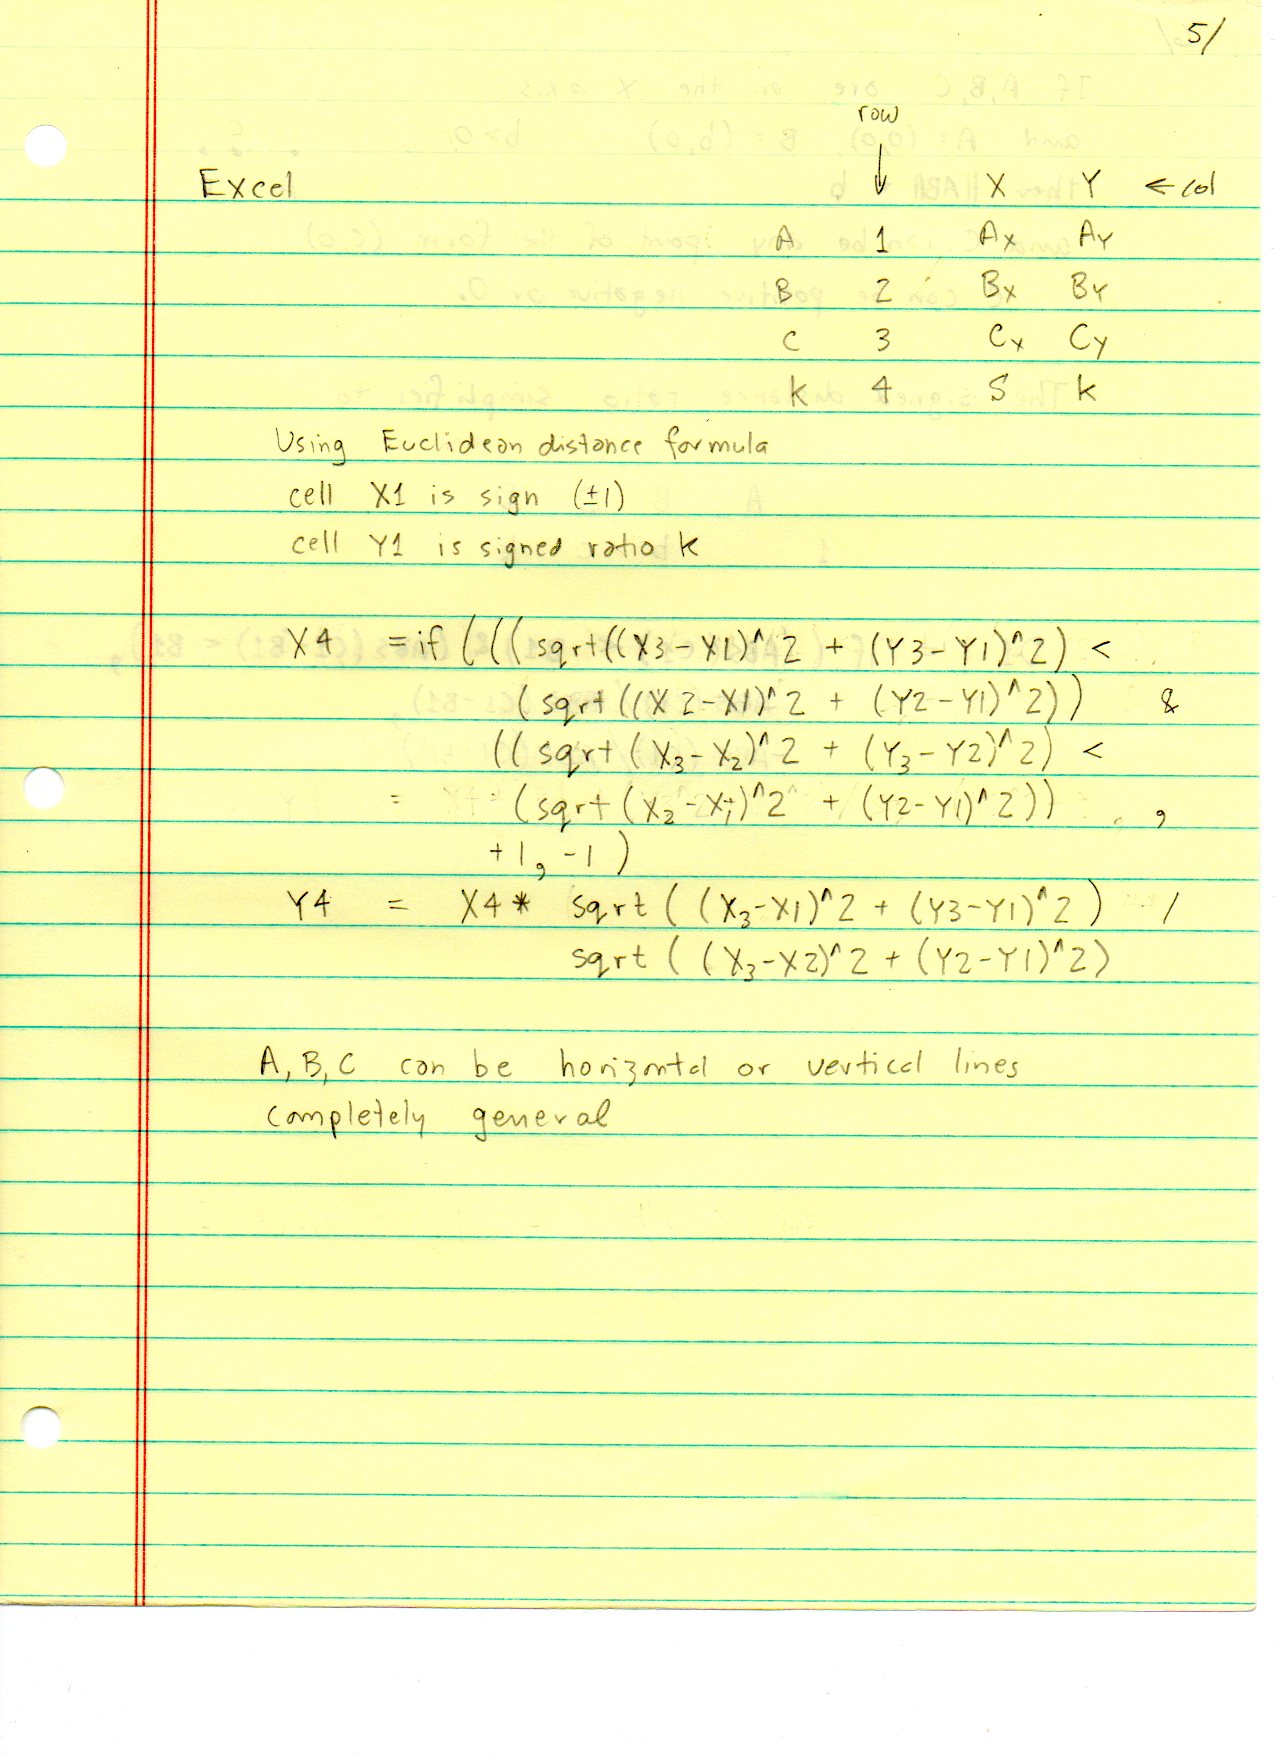 5/
row
↓
Excel X Y ← col
A 1 Ax Ay
B 2 Bx By
C 3 Cx Cy
k 4 S k
Using Euclidean distance formula
cell X1 is sign (±1)
cell Y1 is signed ratio k
X4 = if (((sqrt((X3-X1)^2 + (Y3-Y1)^2) <
(sqrt((X2-X1)^2 + (Y2-Y1)^2)) &
((sqrt(X3-X2)^2 + (Y3-Y2)^2) <
= (sqrt(X2-X1)^2 + (Y2-Y1)^2)) ,
+1, -1)
Y4 = X4* sqrt((X3-X1)^2 + (Y3-Y1)^2) /
sqrt((X3-X2)^2 + (Y2-Y1)^2)
A, B, C can be horizontal or vertical lines
completely general